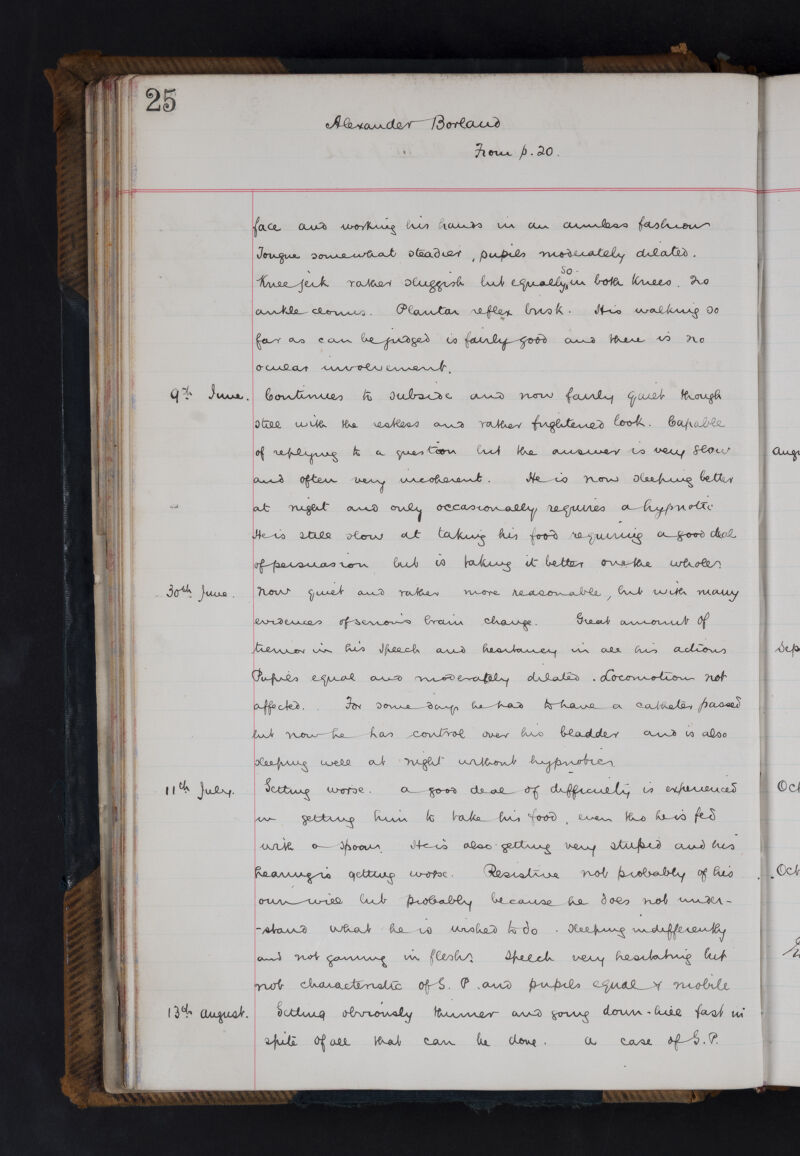 25
Alexander Borland
From p. 20.
face and working his hands in an aimless fashion
Tongue somewhat steadier, pupils moderately dilated.
Knee jerk rather sluggish but equally so in both knees. No
ankle clonus. Plantar reflex brisk. His walking so
far as can be judged is fairly good and there is no
ocular involvement.
9th June. Continues to subside and now fairly quiet though
still with the restless and rather frightened look. Capable
of replying to a question but the answer is very slow
and often very incoherent. He is now sleeping better
at night and only occasionally requires a hypnotic
He is still slow at taking his food requiring a good deal
of persuasion but is taking it better on the whole.
30th June. Now quiet and rather more reasonable, but with many
evidences of serious brain change. Great amount of
tremor in his speech and hesitancy in all his actions
Pupils equal and moderately dilated. Locomotion not
affected. For some days he had to have a catheter passed
but now he has control over his bladder and is also
sleeping well at night without hypnotics
11th July. Getting worse. A good deal of difficulty is experienced
in getting him to take his food, even tho he is fed
with a spoon. He is also getting very stupid and his
hearing is getting worse. Resistive not probably of his
own will but probably because he does not under-
-stand what he is wished to do. Sleeping indifferently
and not gaining in flesh. Speech very hesitating but
not characteristic of G. P. and pupils equal & mobile
13th August. Getting obviously thinner and going down-hill fast in
spite of all that can be done. A case of G.P.
Augu
Sep
Oct
Oct